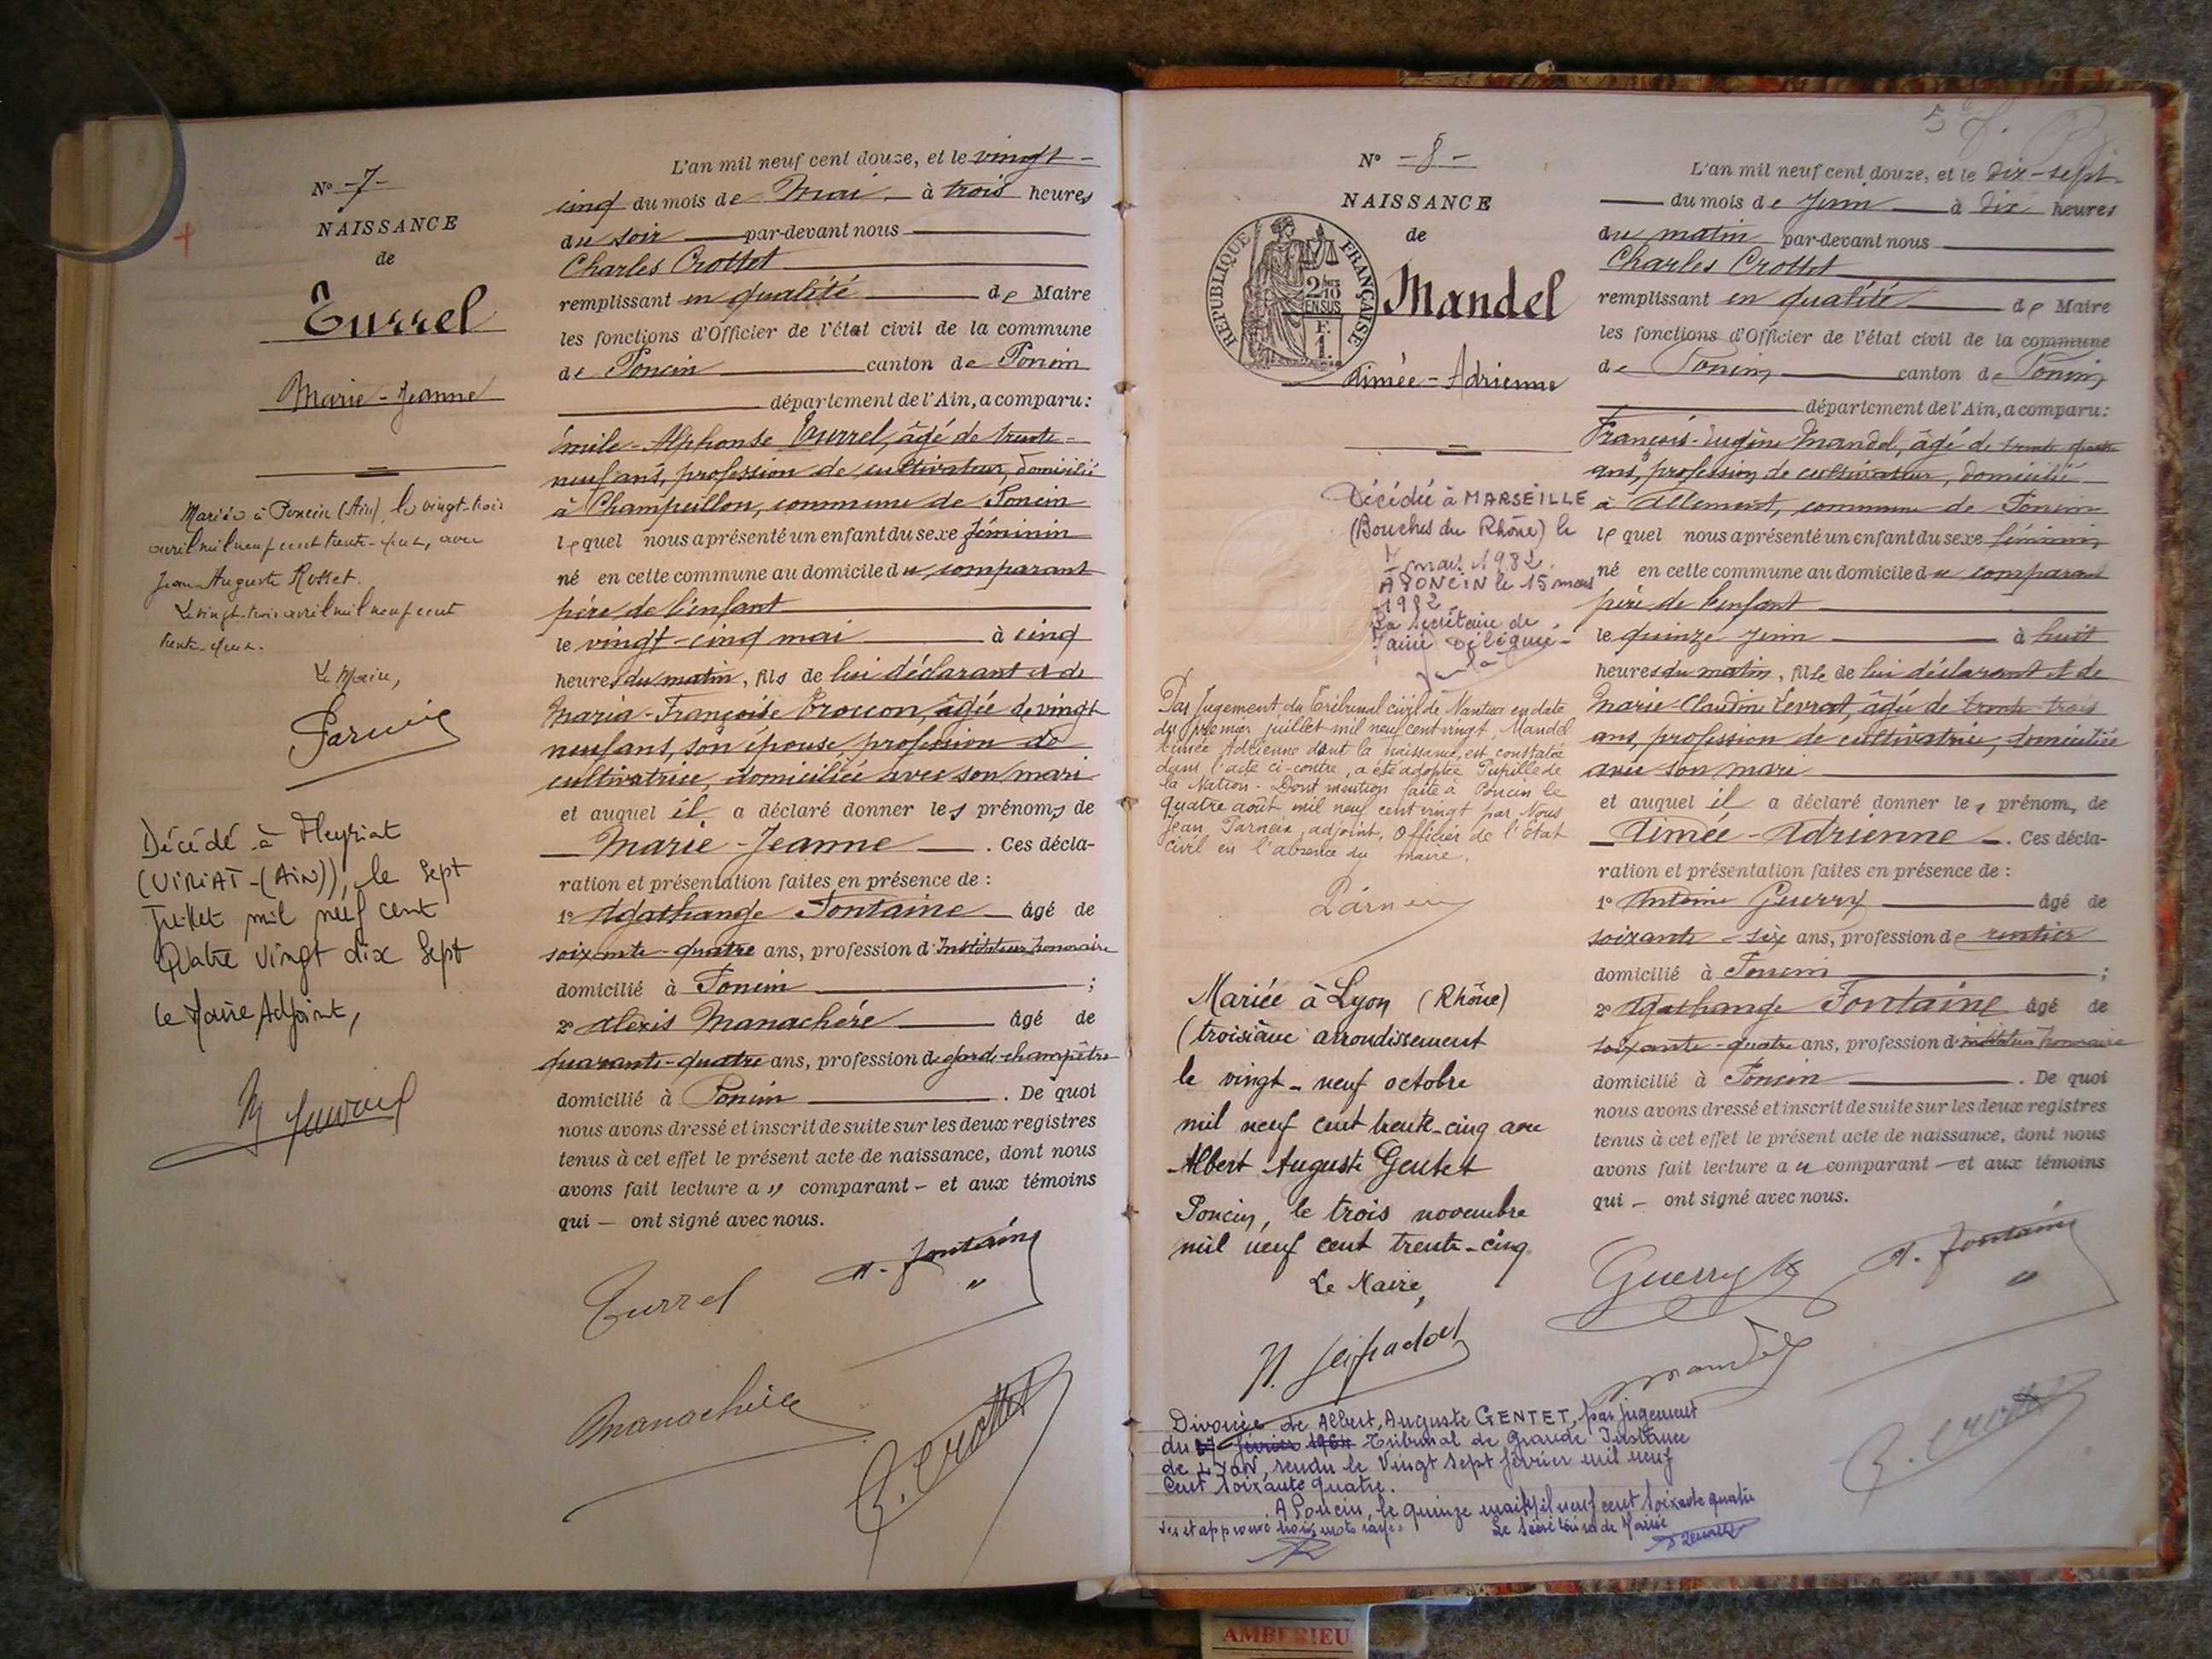 N° -7-
NAISSANCE
de
Turrel
Marie-Jeanne
Mariée à Poncin (Ain), le vingt-trois
avril mil neuf cent trente-, avec
Jean-Auguste Rosset.
Le vingt-trois avril mil neuf cent
trente-
Le Maire,
Décédé à Fleyriat
(VIRIAT-(AIN)), le Sept
Juillet mil neuf cent
Quatre Vingt dix Sept
Le Maire Adjoint,
L'an mil neuf cent douze, et le vingt-
cinq du mois de Mai à trois heures
du soir par-devant nous
Charles Crottet
remplissant en qualité de Maire
les fonctions d'Officier de l'état civil de la commune
de Poncin canton de Poncin
département de l'Ain, a comparu:
Émile-Alphonse Turrel, âgé de trente-
neuf ans, profession de cultivateur, domicilié
à Champeillon, commune de Poncin
lequel nous a présenté un enfant du sexe féminin
né en cette commune au domicile du comparant
père de l'enfant
le vingt-cinq mai à cinq
heures du matin, fils de lui déclarant et de
Maria-Françoise, âgée de vingt
neuf ans, son épouse, profession de
cultivatrice, domiciliée avec son mari
et auquel il a déclaré donner les prénoms de
Marie-Jeanne. Ces décla-
ration et présentation faites en présence de :
1° Agathange Fontaine âgé de
soixante-quatre ans, profession d'Instituteur honoraire
domicilié à Poncin ;
2° Alexis Manachère âgé de
quarante-quatre ans, profession de garde-champêtre
domicilié à Poncin. De quoi
nous avons dressé et inscrit de suite sur les deux registres
tenus à cet effet le présent acte de naissance, dont nous
avons fait lecture au comparant - et aux témoins
qui - ont signé avec nous.
Turrel
A. Fontaine
Manachère
C. Crottet
N° -8-
NAISSANCE
de
REPUBLIQUE FRANÇAISE
2/10 EN SUS
1 F.
Mandel
Aimée-Adrienne
Décédée à MARSEILLE
(Bouches du Rhône) le
7 mars 1982.
A PONCIN le 15 mars
1982
La Secrétaire de
Mairie Déléguée
Par Jugement du Tribunal civil de Nantua en date
du premier juillet mil neuf cent vingt, Mandel
Aimée Adrienne dont la naissance est constatée
dans l'acte ci-contre, a été adoptée Pupille de
la Nation. Dont mention faite à Poncin le
quatre août mil neuf cent vingt par Nous
Jean, adjoint, Officier de l'Etat
civil en l'absence du maire.
Mariée à Lyon (Rhône)
(troisième arrondissement
le vingt-neuf octobre
mil neuf cent trente-cinq avec
Albert Auguste Gentet
Poncin, le trois novembre
mil neuf cent trente-cinq
Le Maire,
Divorcée de Albert, Auguste GENTET, par jugement
du 27 février 1964 Tribunal de Grande Instance
de LYON, rendu le Vingt sept février mil neuf
Cent Soixante quatre.
A Poncin, le quinze mai mil neuf cent Soixante quatre
Lu et approuvé trois mots rayés
Le Secrétaire de Mairie
L'an mil neuf cent douze, et le dix-sept
du mois de Juin à dix heures
du matin par-devant nous
Charles Crottet
remplissant en qualité de Maire
les fonctions d'Officier de l'état civil de la commune
de Poncin canton de Poncin
département de l'Ain, a comparu:
François-Eugène Mandel, âgé de trente quatre
ans, profession de cultivateur, domicilié
à Allement, commune de Poncin
lequel nous a présenté un enfant du sexe féminin
né en cette commune au domicile du comparant
père de l'enfant
le quinze Juin à huit
heures du matin, fille de lui déclarant et de
Marie-Claudine Levrat, âgée de trente trois
ans, profession de cultivatrice, domiciliée
avec son mari
et auquel il a déclaré donner les prénoms de
Aimée-Adrienne. Ces décla-
ration et présentation faites en présence de :
1° Antoine Guerry âgé de
soixante-six ans, profession de rentier
domicilié à Poncin ;
2° Agathange Fontaine âgé de
soixante-quatre ans, profession d'instituteur honoraire
domicilié à Poncin. De quoi
nous avons dressé et inscrit de suite sur les deux registres
tenus à cet effet le présent acte de naissance, dont nous
avons fait lecture au comparant - et aux témoins
qui - ont signé avec nous.
Guerry
A. Fontaine
Mandel
C. Crottet
AMBERIEU